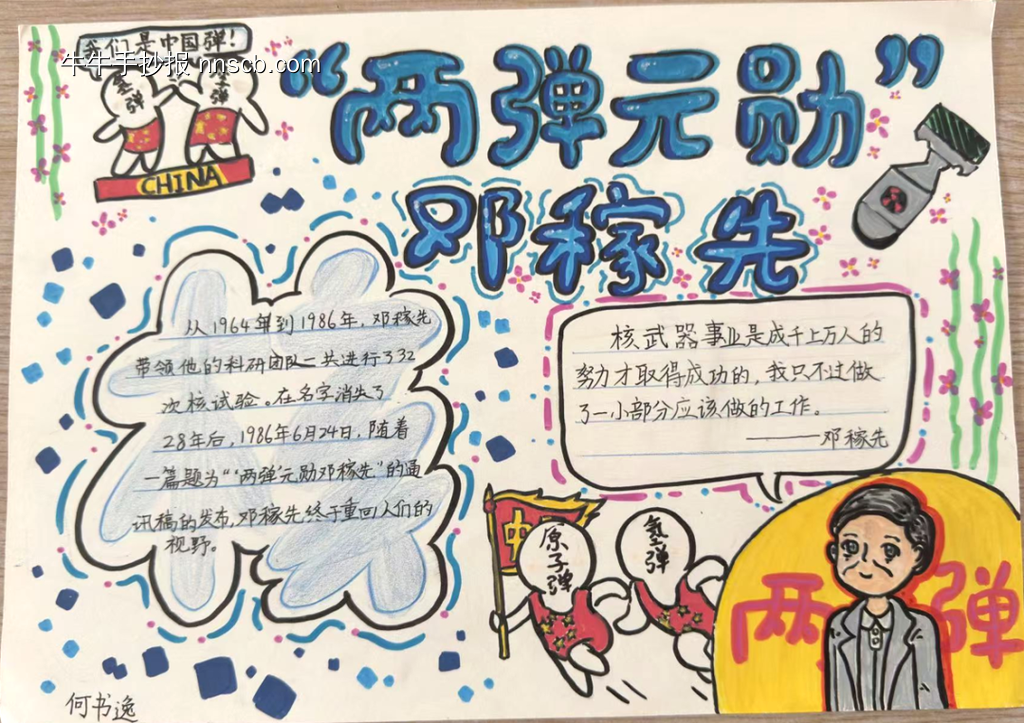 我们是中国弹！
牛牛手抄报 nnscb.com
CHINA
“两弹元勋”
邓稼先
从1964年到1986年，邓稼先
带领他的科研团队一共进行了32
次核试验。在名字消失了
28年后，1986年6月24日，随着
一篇题为“‘两弹’元勋邓稼先”的通
讯稿的发布，邓稼先终于重回人们的
视野。
核武器事业是成千上万人的
努力才取得成功的，我只不过做
了一小部分应该做的工作。
——邓稼先
中
原子弹
氢弹
两弹
何书逸